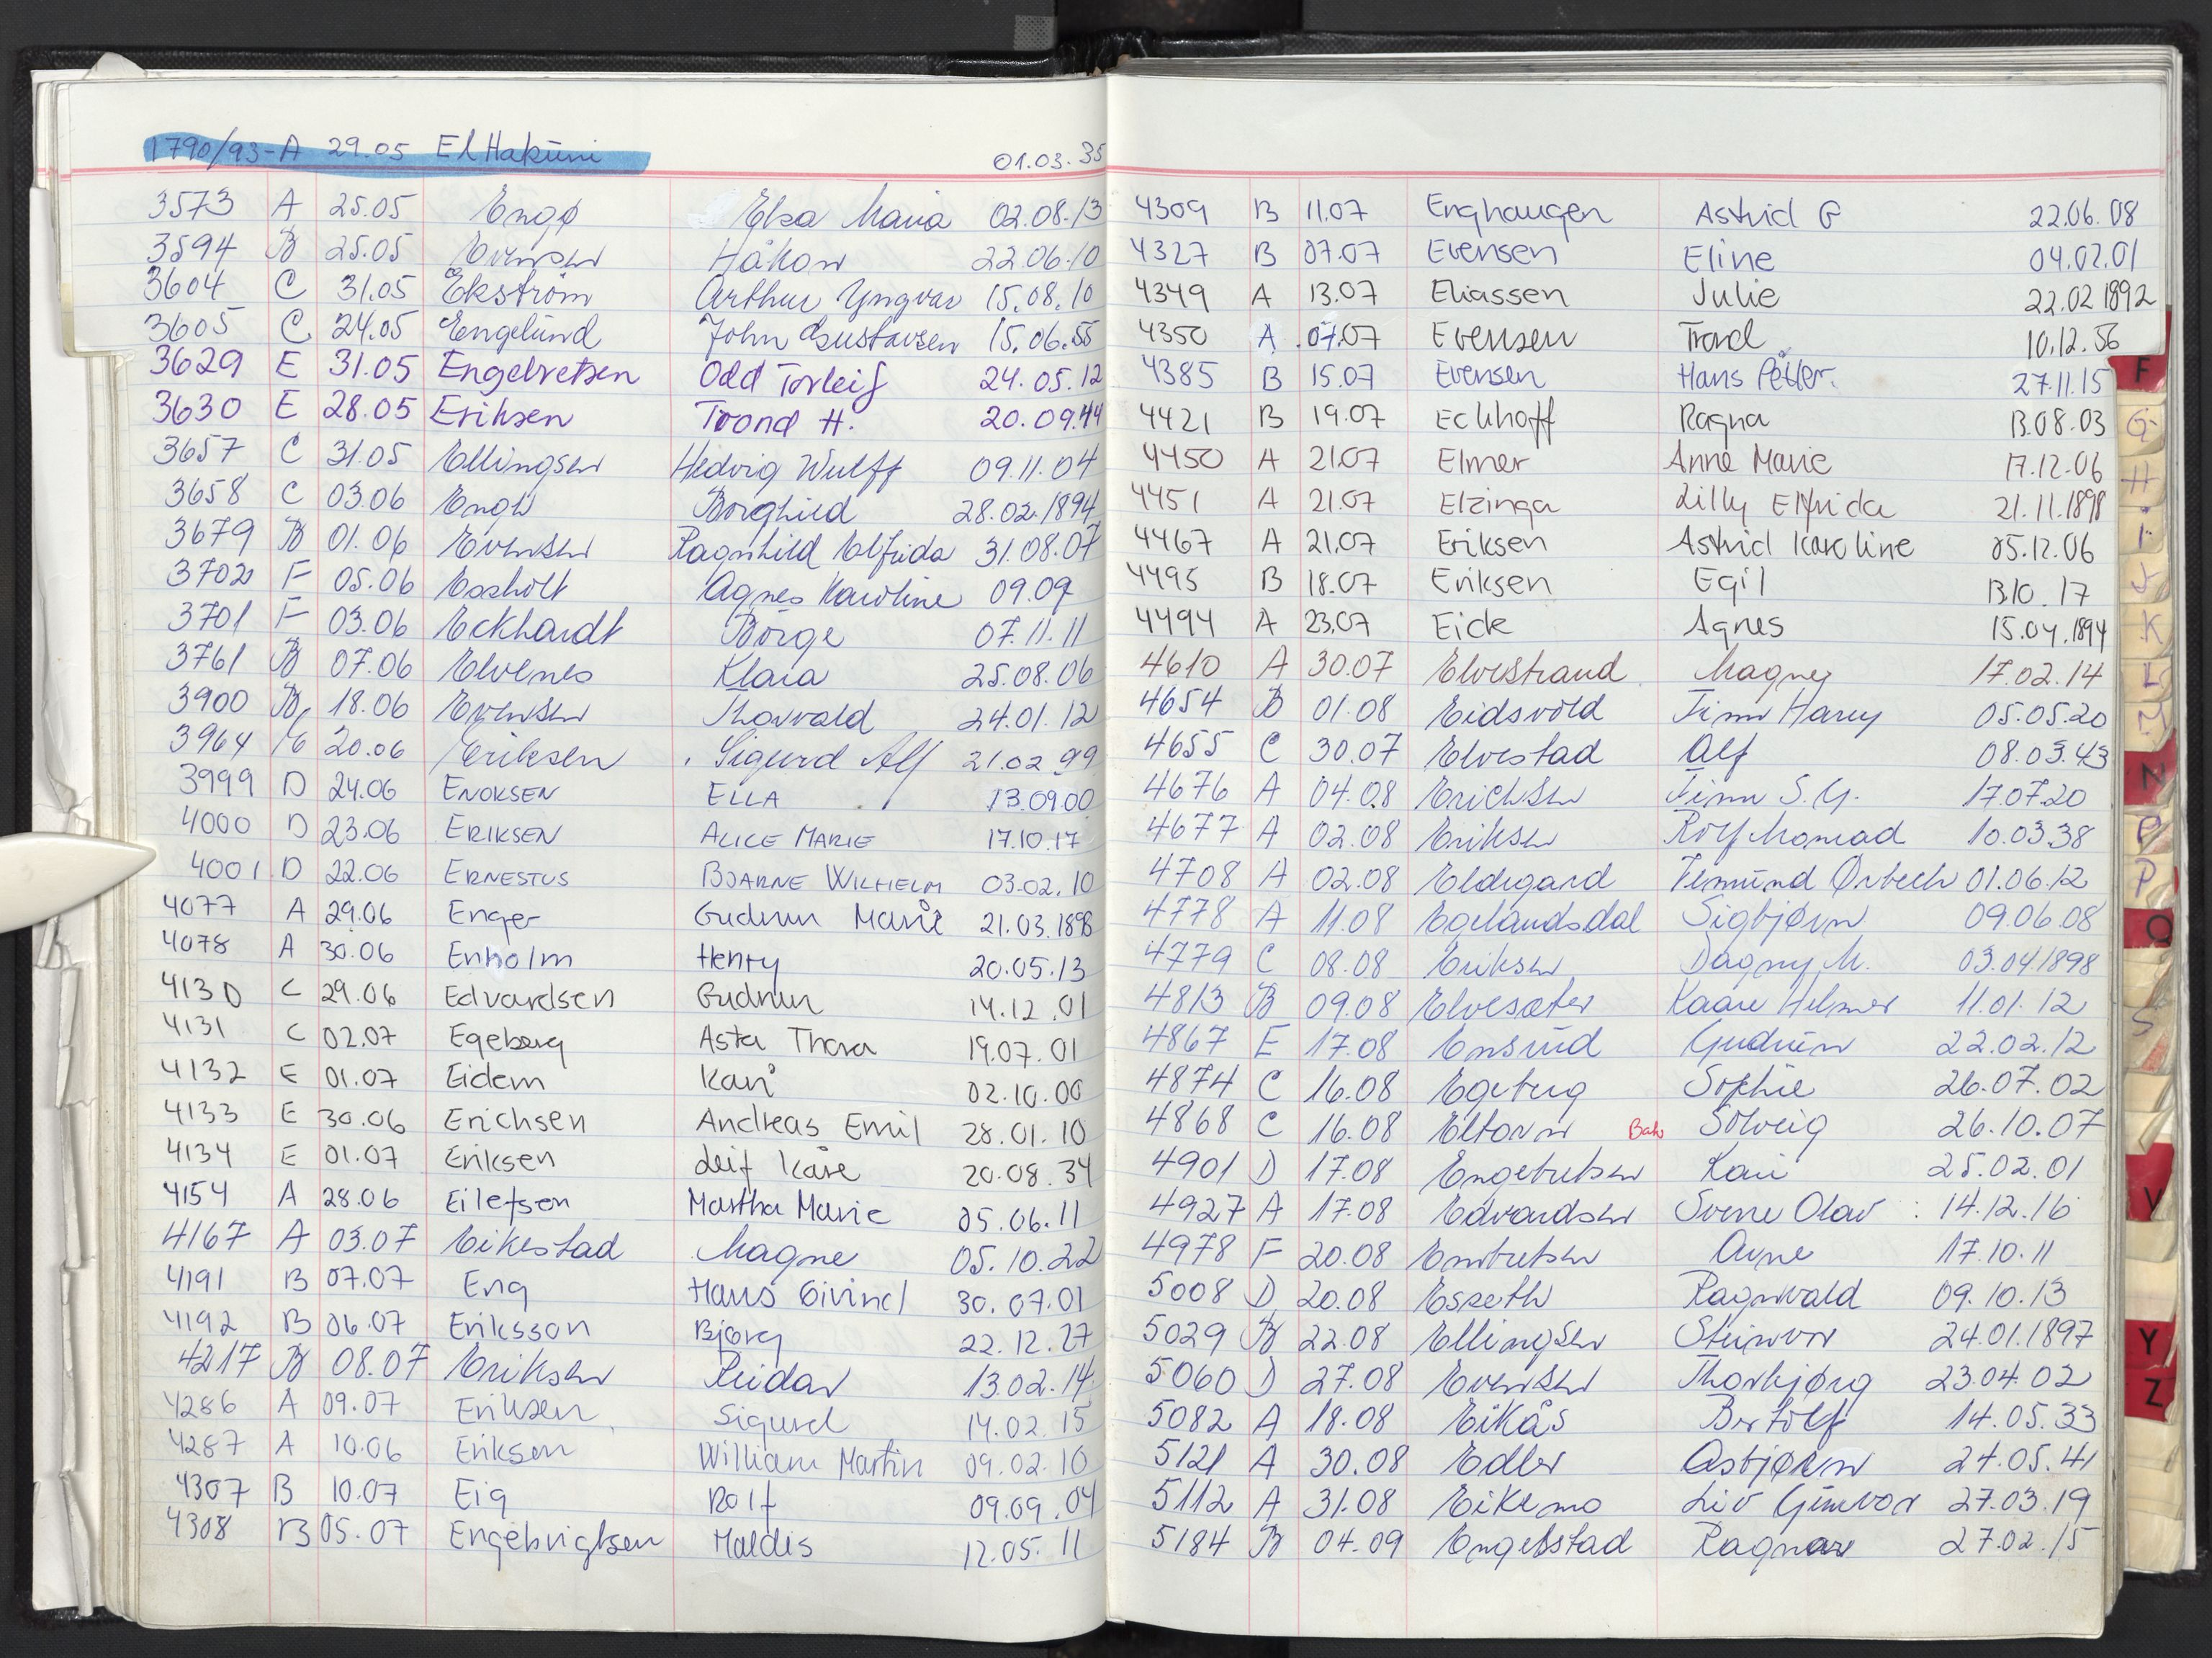 1790/93-A 29.05 El Hakimi 01.03.35
3573 A 25.05 Engø Elsa Maria 02.08.13
3594 B 25.05 Evensen Håkon 22.06.10
3604 C 31.05 Ekstrøm Arthur Yngvar 15.08.10
3605 C 24.05 Engelund John Gustavsen 15.06.55
3629 E 31.05 Engebretsen Odd Torleif 24.05.12
3630 E 28.05 Eriksen Trond H. 20.09.44
3657 C 31.05 Ellingsen Hedvig Wulff 09.11.04
3658 C 03.06 Engh Borghild 28.02.1894
3679 B 01.06 Evensen Ragnhild Elfrida 31.08.07
3702 F 05.06 Essholt Agnes Karoline 09.09
3701 F 03.06 Eckhardt Børge 07.11.11
3761 B 07.06 Elvenes Klara 25.08.06
3900 B 18.06 Evensen Thorvald 24.01.12
3964 E 20.06 Eriksen Sigurd Alf 21.02.99
3999 D 24.06 ENOKSEN ELLA 13.09.00
4000 D 23.06 ERIKSEN ALICE MARIE 17.10.17
4001 D 22.06 ERNESTUS BJARNE WILHELM 03.02.10
4077 A 29.06 Enger Gudrun Marie 21.03.1898
4078 A 30.06 Enholm Henry 20.05.13
4130 C 29.06 Edvardsen Gudrun 14.12.01
4131 C 02.07 Egeberg Asta Thora 19.07.01
4132 E 01.07 Eidem Kari 02.10.00
4133 E 30.06 Erichsen Andreas Emil 28.01.10
4134 E 01.07 Eriksen Leif Kåre 20.08.34
4154 A 28.06 Eilefsen Martha Marie 05.06.11
4167 A 03.07 Eikestad Magne 05.10.22
4191 B 07.07 Eng Hans Eivind 30.07.01
4192 B 06.07 Eriksson Bjørg 22.12.27
4217 B 08.07 Eriksen Reidar 13.02.14
4286 A 09.07 Eriksen Sigurd 14.02.15
4287 A 10.06 Eriksen William Martin 09.02.10
4307 B 10.07 Eig Rolf 09.09.04
4308 B 05.07 Engebrigtsen Haldis 12.05.11
4309 B 11.07 Enghaugen Astrid G 22.06.08
4327 B 07.07 Evensen Eline 04.02.01
4349 A 13.07 Eliassen Julie 22.02 1892
4350 A 07.07 Evensen Trond 10.12.56
4385 B 15.07 Evensen Hans Petter 27.11.15
4421 B 19.07 Eckhoff Ragna 13.08.03
4450 A 21.07 Elmer Anne Marie 17.12.06
4451 A 21.07 Elzinga Lilly Elfrida 21.11.1898
4467 A 21.07 Eriksen Astrid Karoline 05.12.06
4495 B 18.07 Eriksen Egil 13.10.17
4494 A 23.07 Eick Agnes 15.04.1894
4610 A 30.07 Elvestrand Magny 17.02.14
4654 B 01.08 Eidsvold Finn Harry 05.05.20
4655 C 30.07 Elvestad Alf 08.03.43
4676 A 04.08 Erichsen Finn S.G. 17.07.20
4677 A 02.08 Eriksen Rolf Monrad 10.03.38
4708 A 02.08 Eldegard Ørbech 01.06.12
4778 A 11.08 Egelandsdal Sigbjørn 09.06.08
4779 C 08.08 Eriksen Dagny M. 03.04.1898
4813 B 09.08 Elvesæter Kaare Helmer 11.01.12
4867 E 17.08 Ensrud Gudrun 22.02.12
4874 C 16.08 Egeberg Sophie 26.07.02
4868 C 16.08 Eltorn Bak Solveig 26.10.07
4901 D 17.08 Engebretsen Kari 25.02.01
4927 A 17.08 Edvardsen Sverre Olav 14.12.16
4978 F 20.08 Embretsen Arne 17.10.11
5008 D 20.08 Espeth Ragnvald 09.10.13
5029 B 22.08 Ellingsen Steinvor 24.01.1897
5060 D 27.08 Evensen Thorbjørg 23.04.02
5082 A 18.08 Eikås Bertolf 14.05.33
5121 A 30.08 Edler Asbjørn 24.05.41
5112 A 31.08 Eikemo Liv Gunvor 27.03.19
5184 B 04.09 Engelstad Ragnar 27.02.15
F
G
H
I
J
K
L
M
N
P
Q
S
V
Y
Z